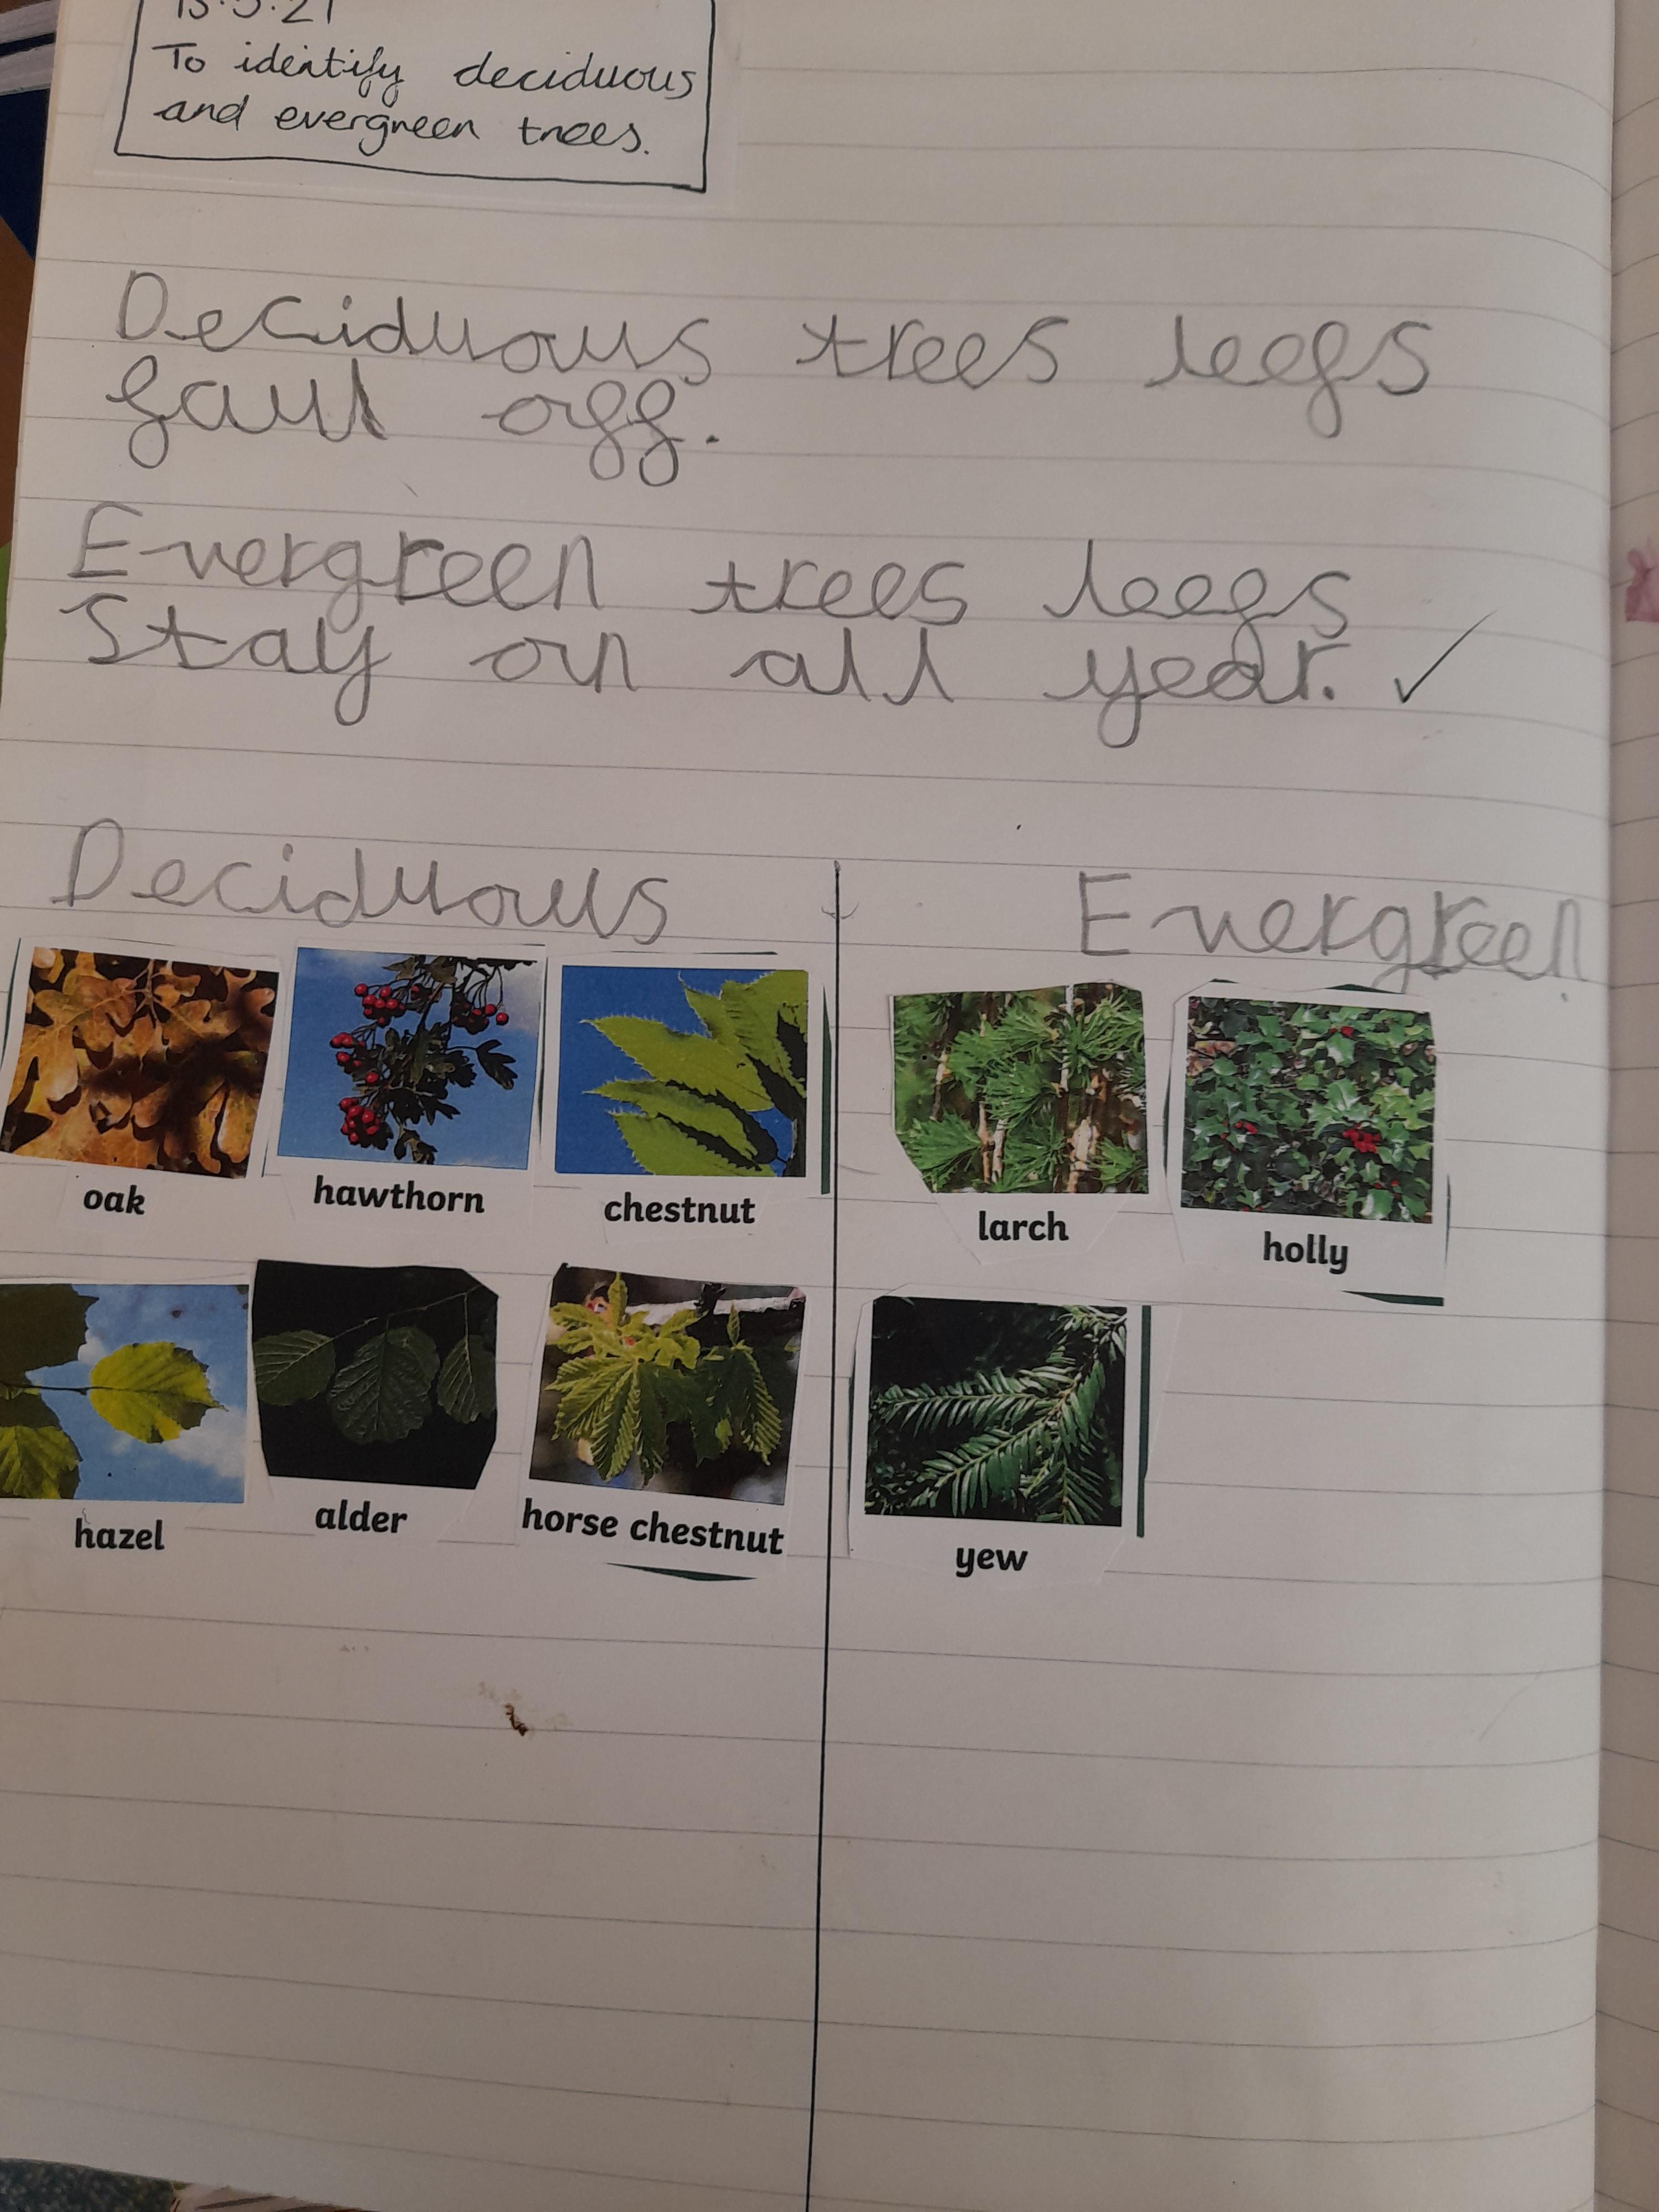 15.3.21
To identify deciduous
and evergreen trees.
Deciduous trees leefs
faull off.
Evergreen trees leefs
Stay on all year. ✓
Deciduous Evergreen
oak hawthorn chestnut larch holly
hazel alder horse chestnut yew